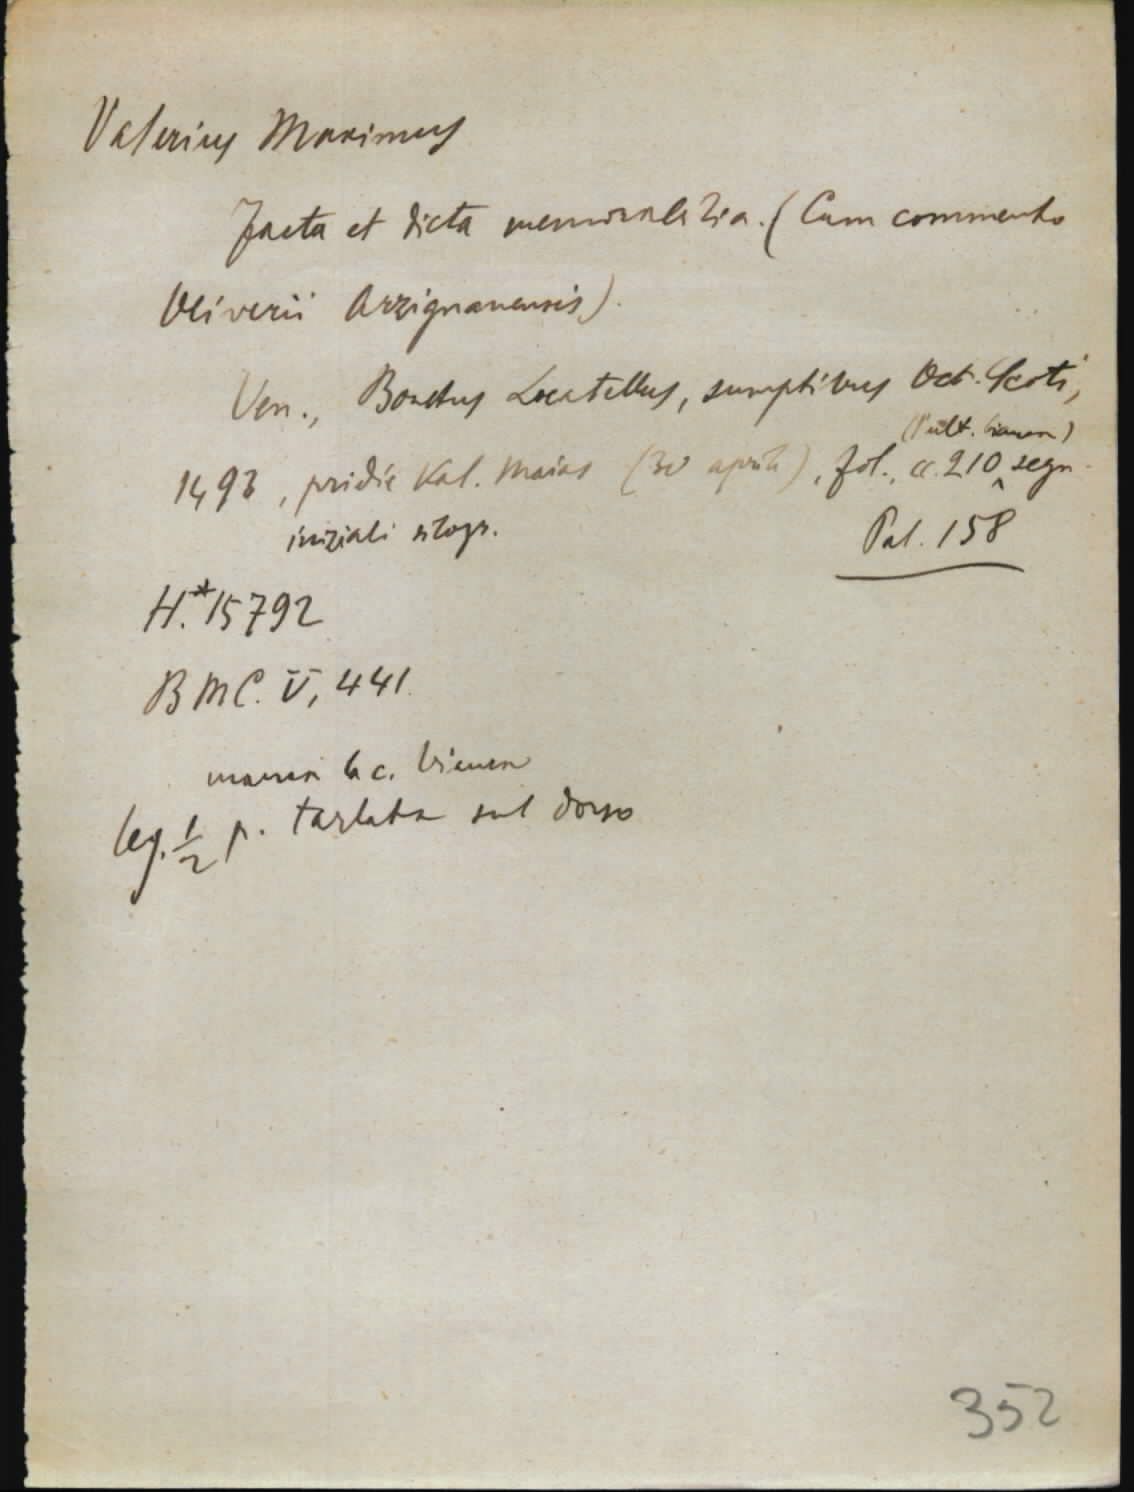 Valerius Maximus
Facta et dicta memorabilia. (Cum commento
Oliverii Arzignanensis).
Ven., Bonetus Locatellus, sumptibus Oct. Scoti,
(l'ult. bianca)
1493, pridie Kal. Maias (30 aprile), fol., cc. 210 segn.
iniziali silogr.
Pal. 158
H.*15792
BMC. V, 441.
manca la c. bianca
leg. 1/2 p. tarlata sul dorso
352